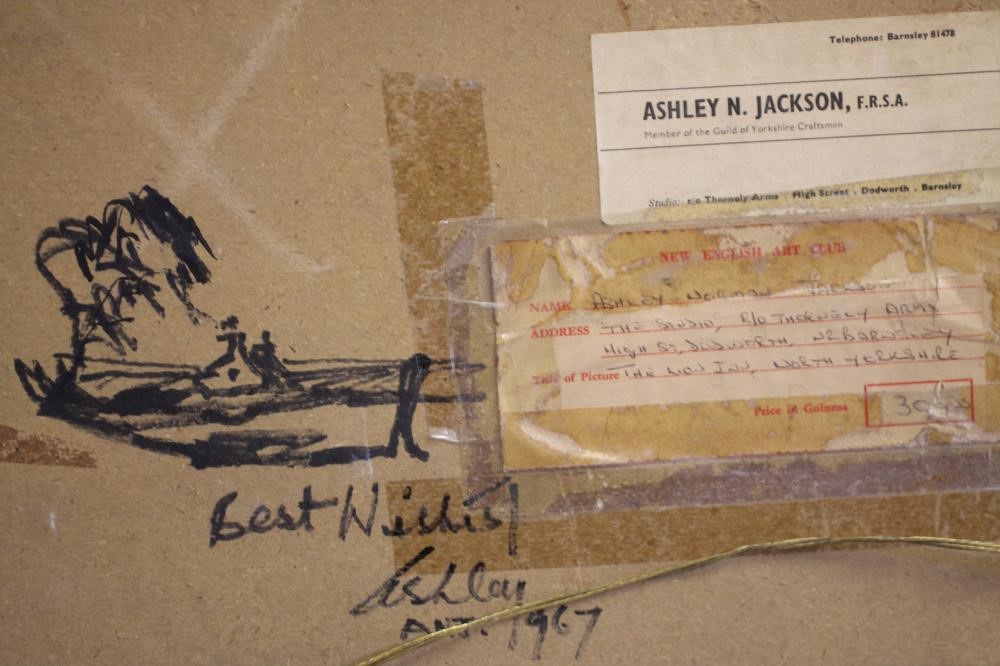 Telephone: Barnsley 81478
ASHLEY N. JACKSON, F.R.S.A.
Member of the Guild of Yorkshire Craftsmen
Studio: r/o Thornely Arms . High Street . Dodworth . Barnsley
NEW ENGLISH ART CLUB
NAME ASHLEY NORMAN JACKSON
ADDRESS THE STUDIO, R/O THORNELY ARMS
HIGH ST, DODWORTH, NR BARNSLEY
Title of Picture THE LION INN, NORTH YORKSHIRE
Price in Guineas
Best Wishes
Ashley
1967